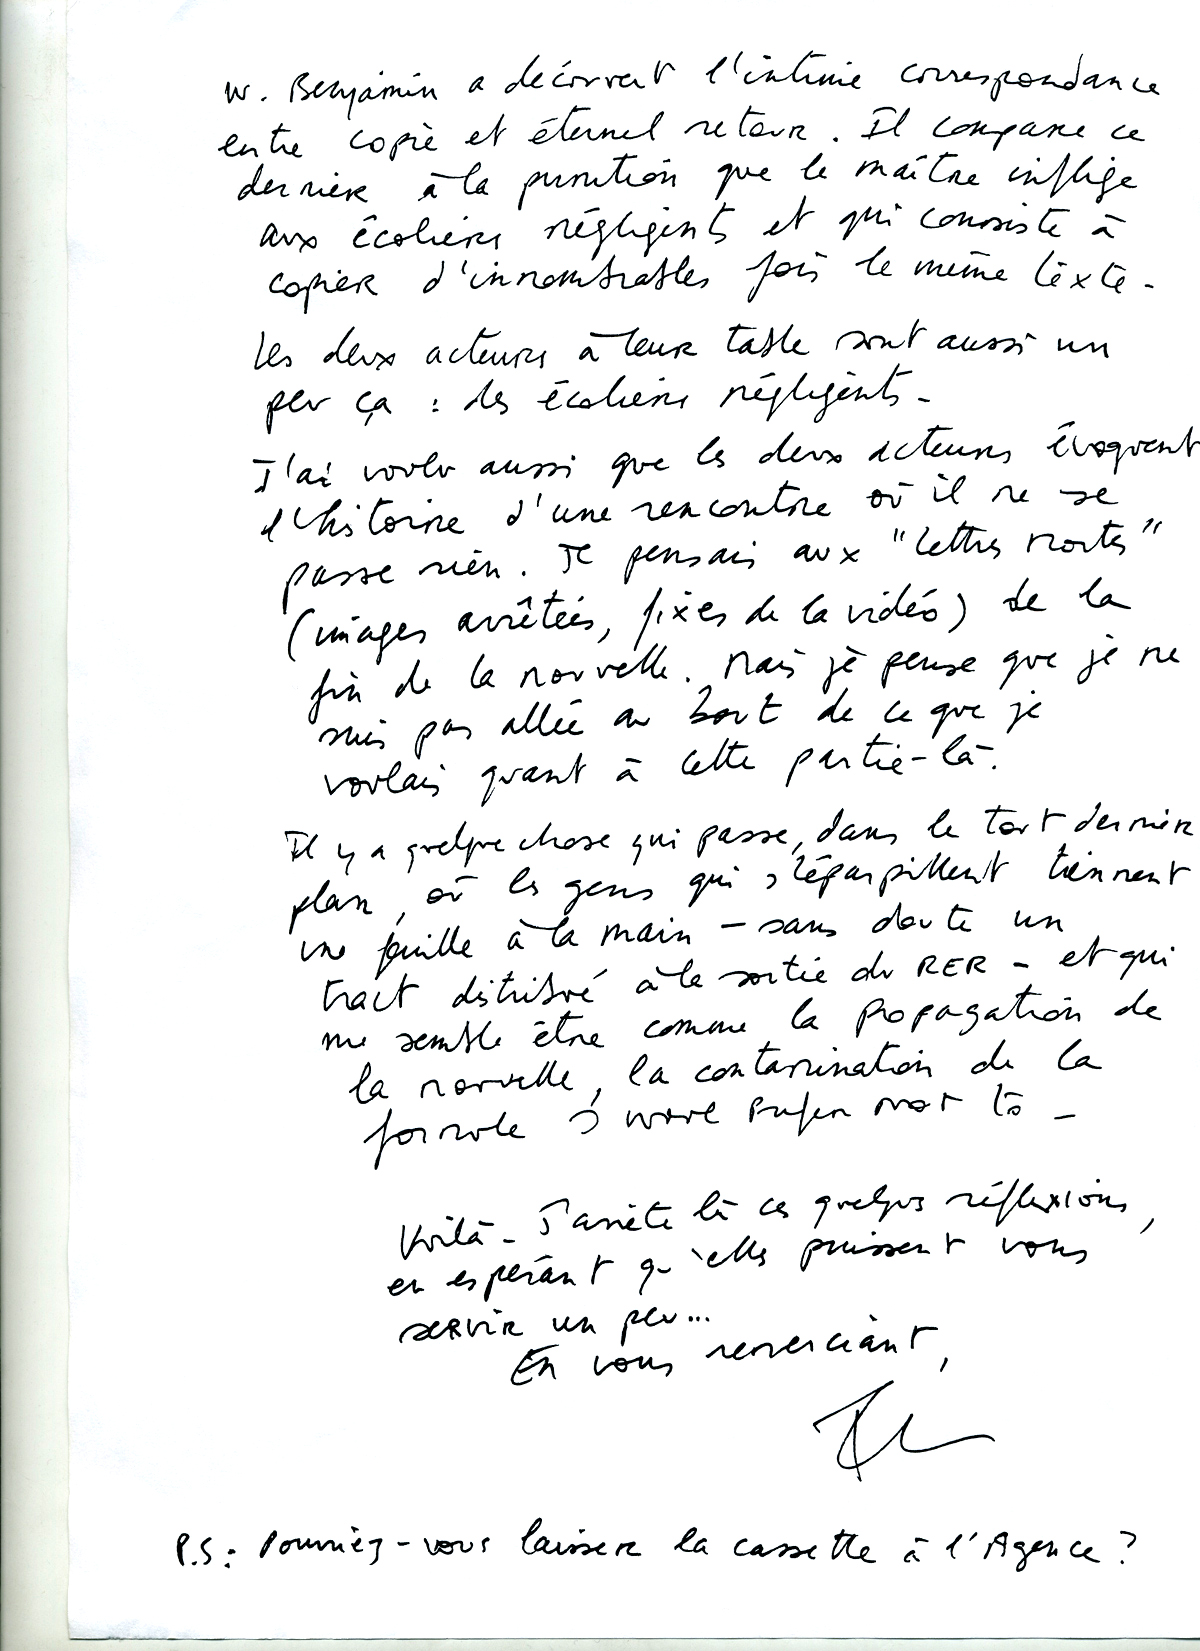 W. Benjamin a découvert l'intime correspondance
entre copie et éternel retour. Il compare ce
dernier à la punition que le maître inflige
aux écoliers négligents et qui consiste à
copier d'innombrables fois le même texte-
les deux acteurs à leur table sont aussi un
peu ça : des écoliers négligents-
J'ai voulu aussi que les deux acteurs évoquent
l'histoire d'une rencontre où il ne se
passe rien. Je pensais aux "lettres mortes"
(images arrêtées, fixes de la vidéo) de la
fin de la nouvelle. Mais je pense que je ne
suis pas allée au bout de ce que je
voulais quant à cette partie-là.
Il y a quelque chose qui passe, dans le tout dernier
plan, où les gens qui s'éparpillent tiennent
une feuille à la main – sans doute un
tract distribué à la sortie du RER – et qui
me semble être comme la propagation de
la nouvelle, la contamination de la
formule I would prefer not to –
Voilà- J'arrête là ces quelques réflexions,
en espérant qu'elles puissent vous
servir un peu...
En vous remerciant,
P.S: Pourriez-vous laisser la cassette à l'Agence?